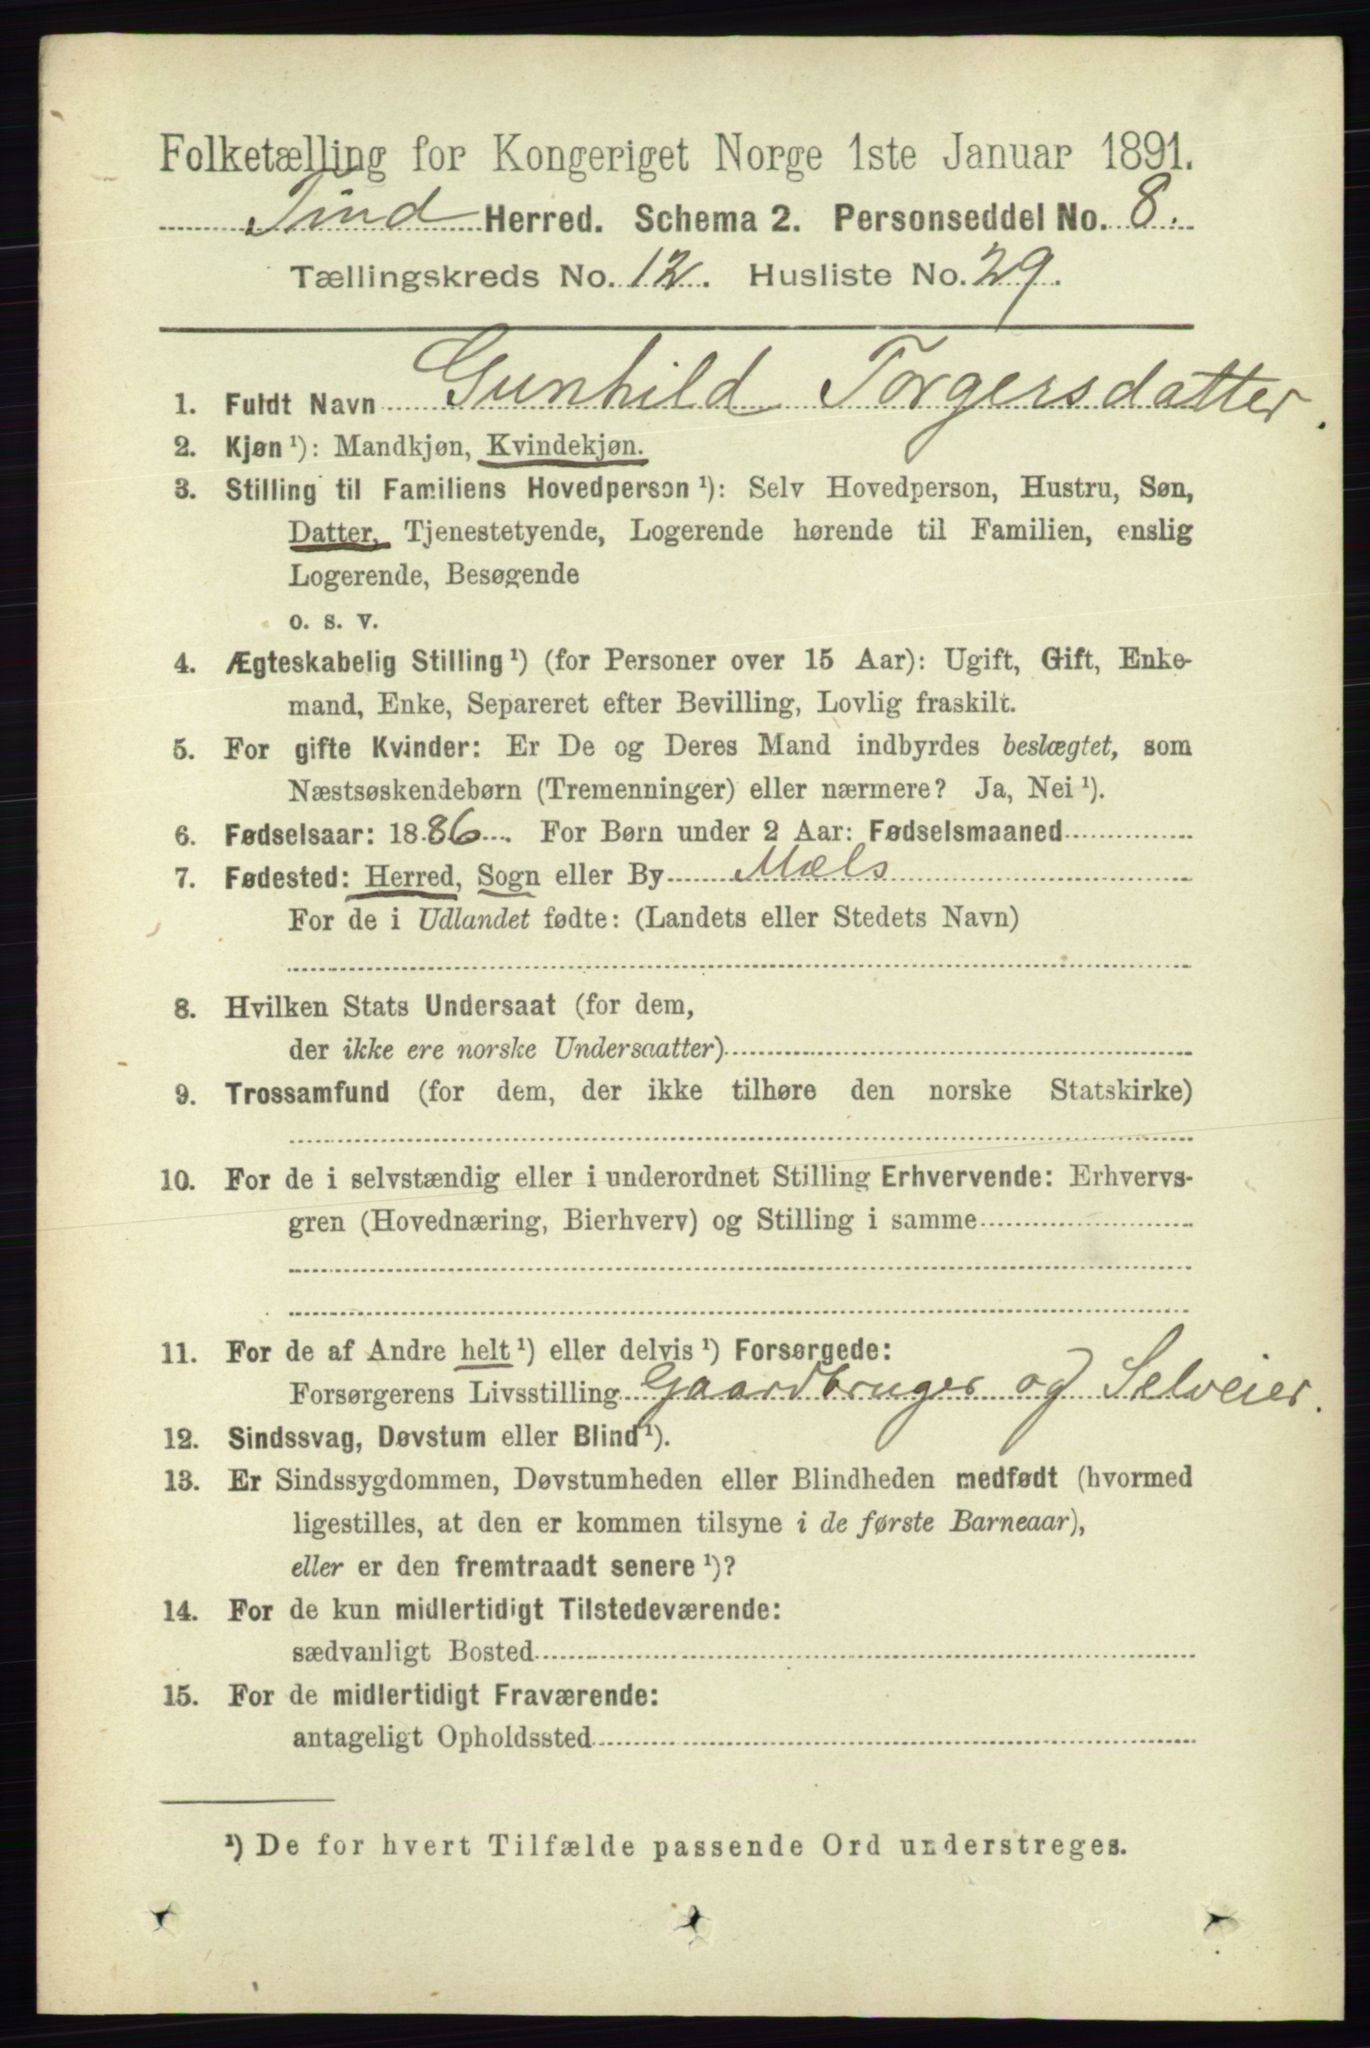 Folketælling for Kongeriget Norge 1ste Januar 1891.
Tind Herred. Schema 2. Personseddel No. 8.
Tællingskreds No. 12. Husliste No. 29.
1. Fuldt Navn Gunhild Torgersdatter.
2. Kjøn¹): Mandkjøn, Kvindekjøn.
3. Stilling til Familiens Hovedperson¹): Selv Hovedperson, Hustru, Søn,
Datter, Tjenestetyende, Logerende hørende til Familien, enslig
Logerende, Besøgende
o. s. v.
4. Ægteskabelig Stilling¹) (for Personer over 15 Aar): Ugift, Gift, Enke-
mand, Enke, Separeret efter Bevilling, Lovlig fraskilt.
5. For gifte Kvinder: Er De og Deres Mand indbyrdes beslægtet, som
Næstsøskendebørn (Tremenninger) eller nærmere? Ja, Nei¹).
6. Fødselsaar: 1886. For Børn under 2 Aar: Fødselsmaaned
7. Fødested: Herred, Sogn eller By Mæls
For de i Udlandet fødte: (Landets eller Stedets Navn)
8. Hvilken Stats Undersaat (for dem,
der ikke ere norske Undersaatter)
9. Trossamfund (for dem, der ikke tilhøre den norske Statskirke)
10. For de i selvstændig eller i underordnet Stilling Erhvervende: Erhvervs-
gren (Hovednæring, Bierhverv) og Stilling i samme
11. For de af Andre helt¹) eller delvis¹) Forsørgede:
Forsørgerens Livsstilling Gaardbruger og Selveier.
12. Sindssvag, Døvstum eller Blind¹).
13. Er Sindssygdommen, Døvstumheden eller Blindheden medfødt (hvormed
ligestilles, at den er kommen tilsyne i de første Barneaar),
eller er den fremtraadt senere¹)?
14. For de kun midlertidigt Tilstedeværende:
sædvanligt Bosted
15. For de midlertidigt Fraværende:
antageligt Opholdssted
¹) De for hvert Tilfælde passende Ord understreges.